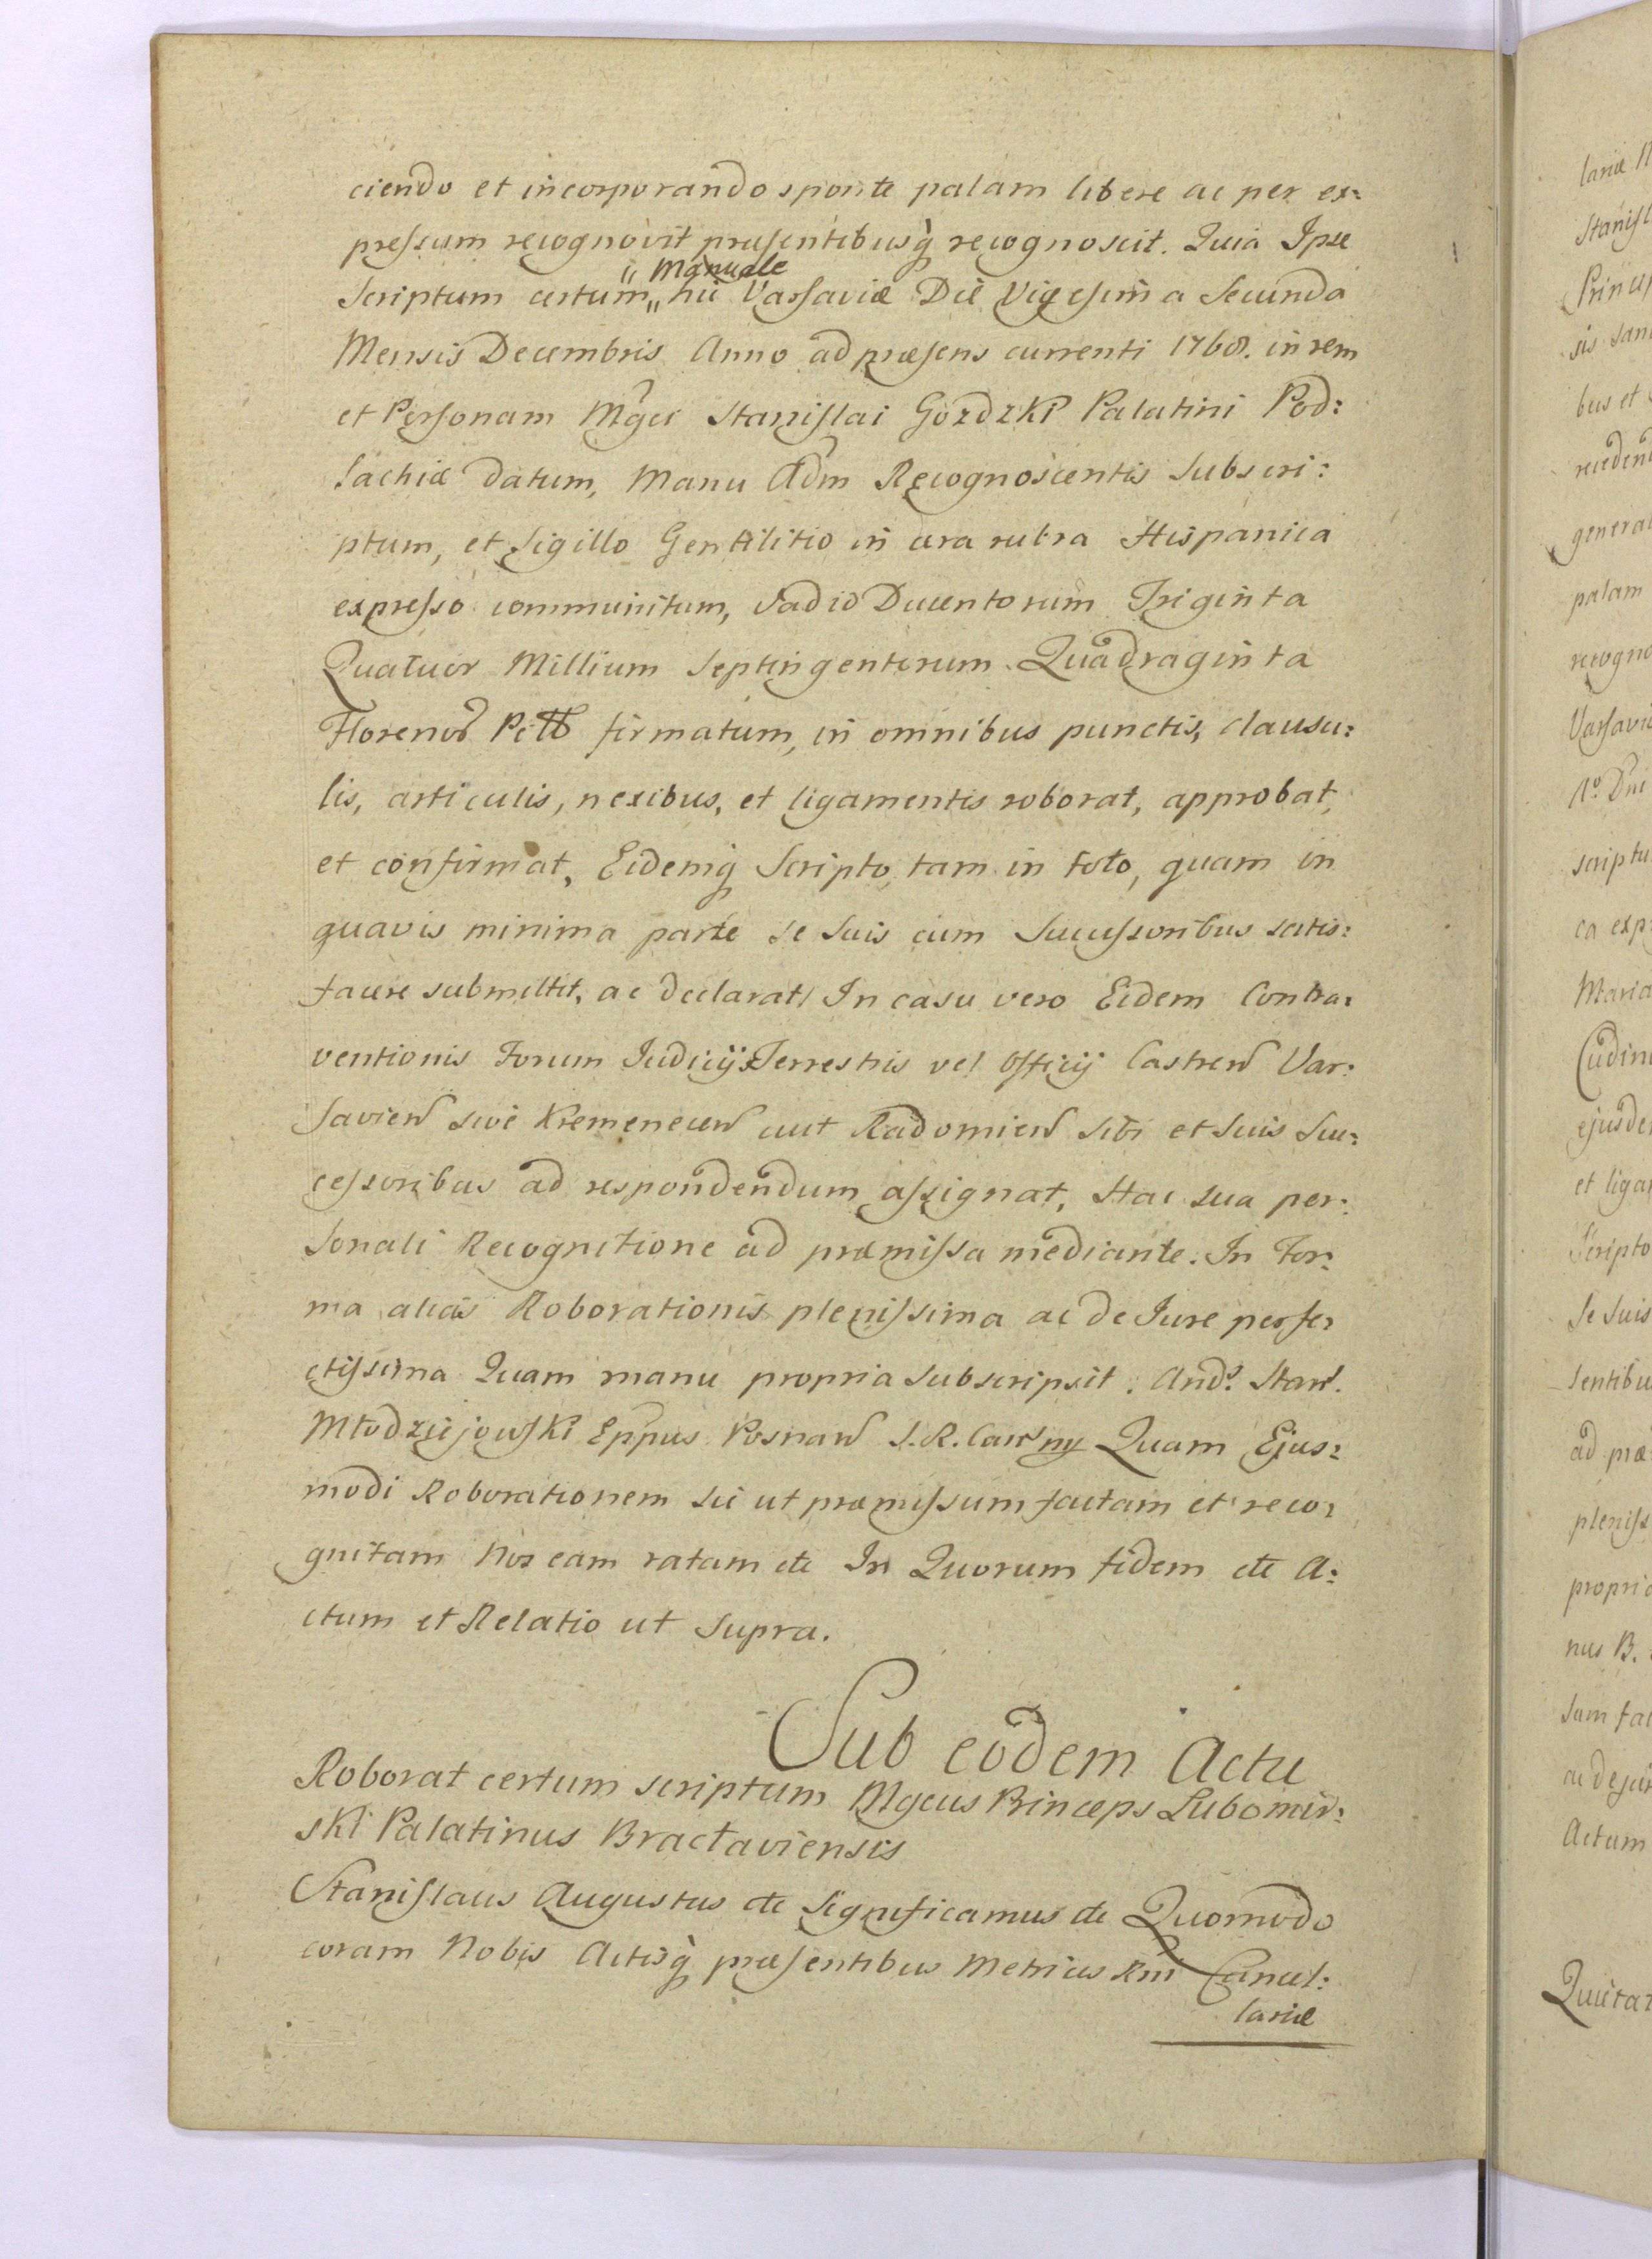 ciendo et incorporando sponte palam libere ac per ex:
pressum recognovit præsentibusq̀ recognoscit. Quia Ipse
Scriptum certum „Manuale„ hic Varsaviæ Die Vigesima Secunda
Mensis Decembris Anno ad præsens currenti 1768. in rem
et Personam Mgci Stanislai Gozdzki Palatini Pod:
lachiæ datum, Manu Adm Recognoscentis Subscri:
ptum, et Sigillo Gentilitio in cera rubra Hispanica
expresso communitum, Vadio Ducentorum Triginta
Quatuor Millium Septingentorum Quadraginta
Floreno Pltt firmatum, in omnibus punctis, clausu:
lis, articulis, nexibus, et ligamentis roborat, approbat,
et confirmat, Eidemq̀ Scripto, tam in toto, quam in
quavis minima parte se Suis cum Successoribus satis:
facere submittit, ac declarat, In casu vero Eidem Contra:
ventionis Forum Iudicij Terrestris vel Officij Castren Var:
savien sive Kremenecen aut Radomien sibi et Suis Suc:
cessoribus ad respondendum assignat, Hac sua per:
sonali Recognitione ad præmissa mediante. In For:
ma alias Roborationis plenissima ac de Iure perfe:
ctissima Quam manu propria Subscripsit. And. Stan.
Młodziejowski Eppus Posnan S. R. Can mp Quam Ejus:
modi Roborationem sic ut præmissum factam et reco:
gnitam Nos eam ratam etc In Quorum fidem etc A:
ctum et Relatio ut Supra.
Sub eodem Actu
Roborat certum scriptum Mgcus Princeps Lubomir:
ski Palatinus Bractaviensis
Stanislaus Augustus etc Significamus etc Quomodo
coram Nobis Actisq̀ præsentibus Metrices Rni Cancel:
lariæ